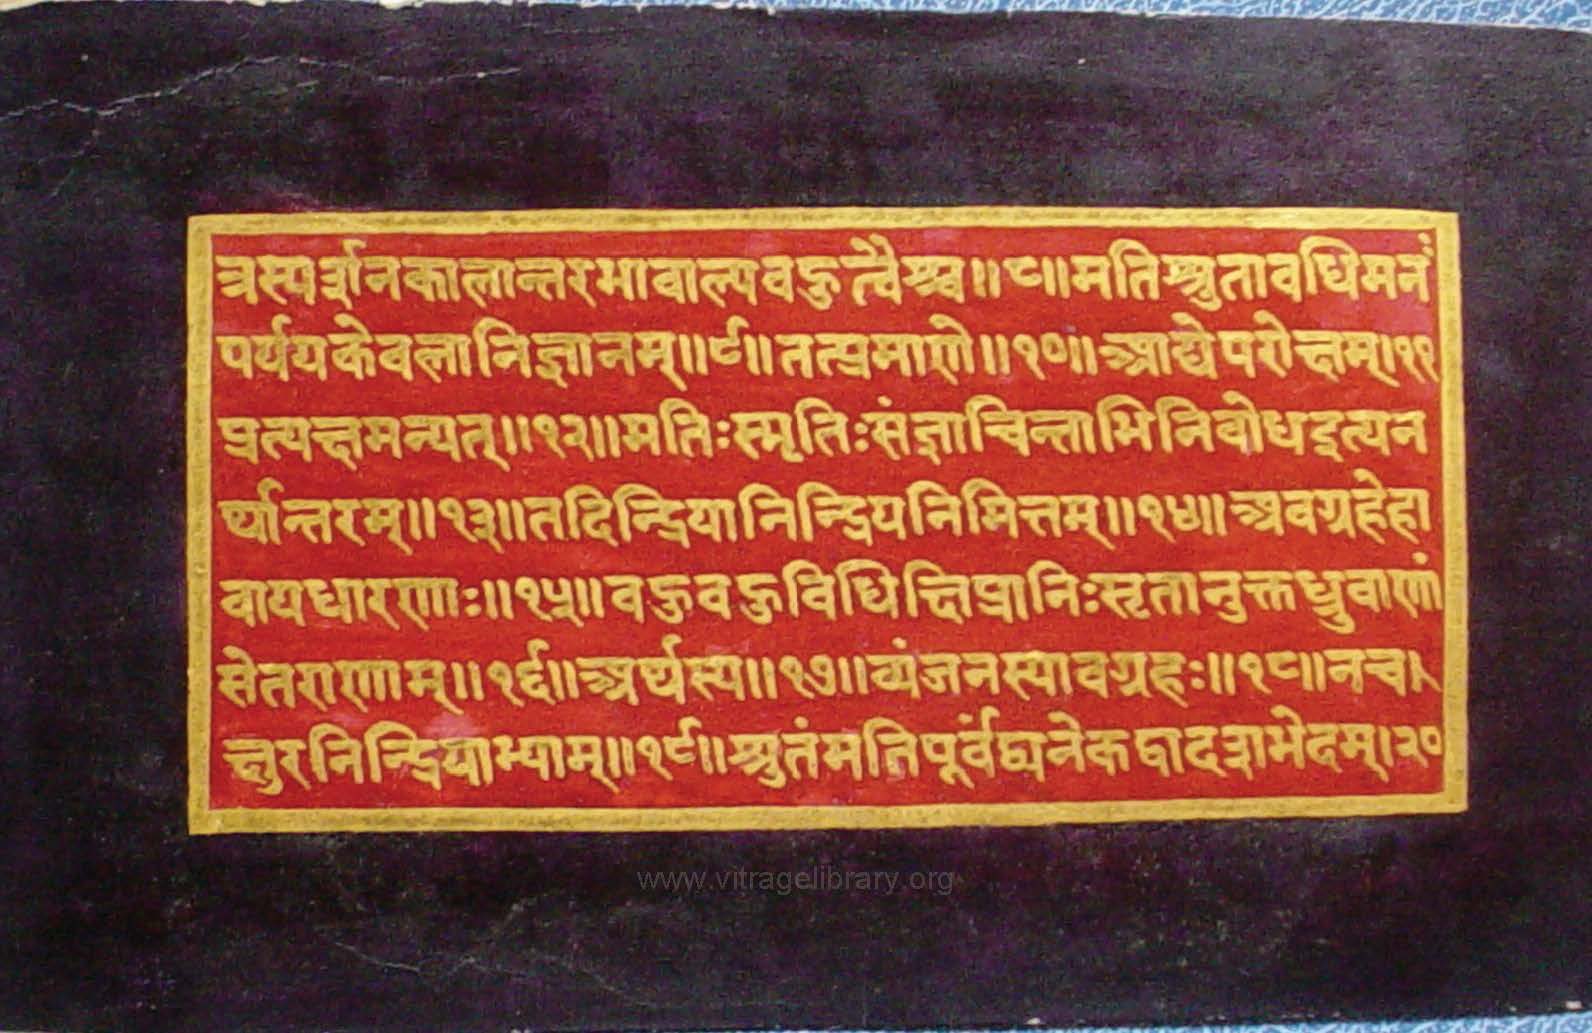 त्रस्पर्शनकालान्तरभावाल्पबहुत्वैश्च॥८॥मतिश्रुतावधिमनः
पर्ययकेवलानिज्ञानम्॥९॥तत्प्रमाणे॥१०॥आद्येपरोक्षम्।११
प्रत्यक्षमन्यत्॥१२॥मतिःस्मृतिःसंज्ञाचिन्ताभिनिबोधइत्यन
र्थान्तरम्॥१३॥तदिन्द्रियानिन्द्रियनिमित्तम्॥१४॥अवग्रहेहा
वायधारणाः॥१५॥बहुबहुविधिक्षिप्रानिःसृतानुक्तध्रुवाणां
सेतराणाम्॥१६॥अर्थस्य॥१७॥व्यंजनस्यावग्रहः॥१८॥नच
क्षुरनिन्द्रियाभ्याम्॥१९॥श्रुतंमतिपूर्वंद्व्यनेकद्वादशभेदम्।२०
www.vitragelibrary.org